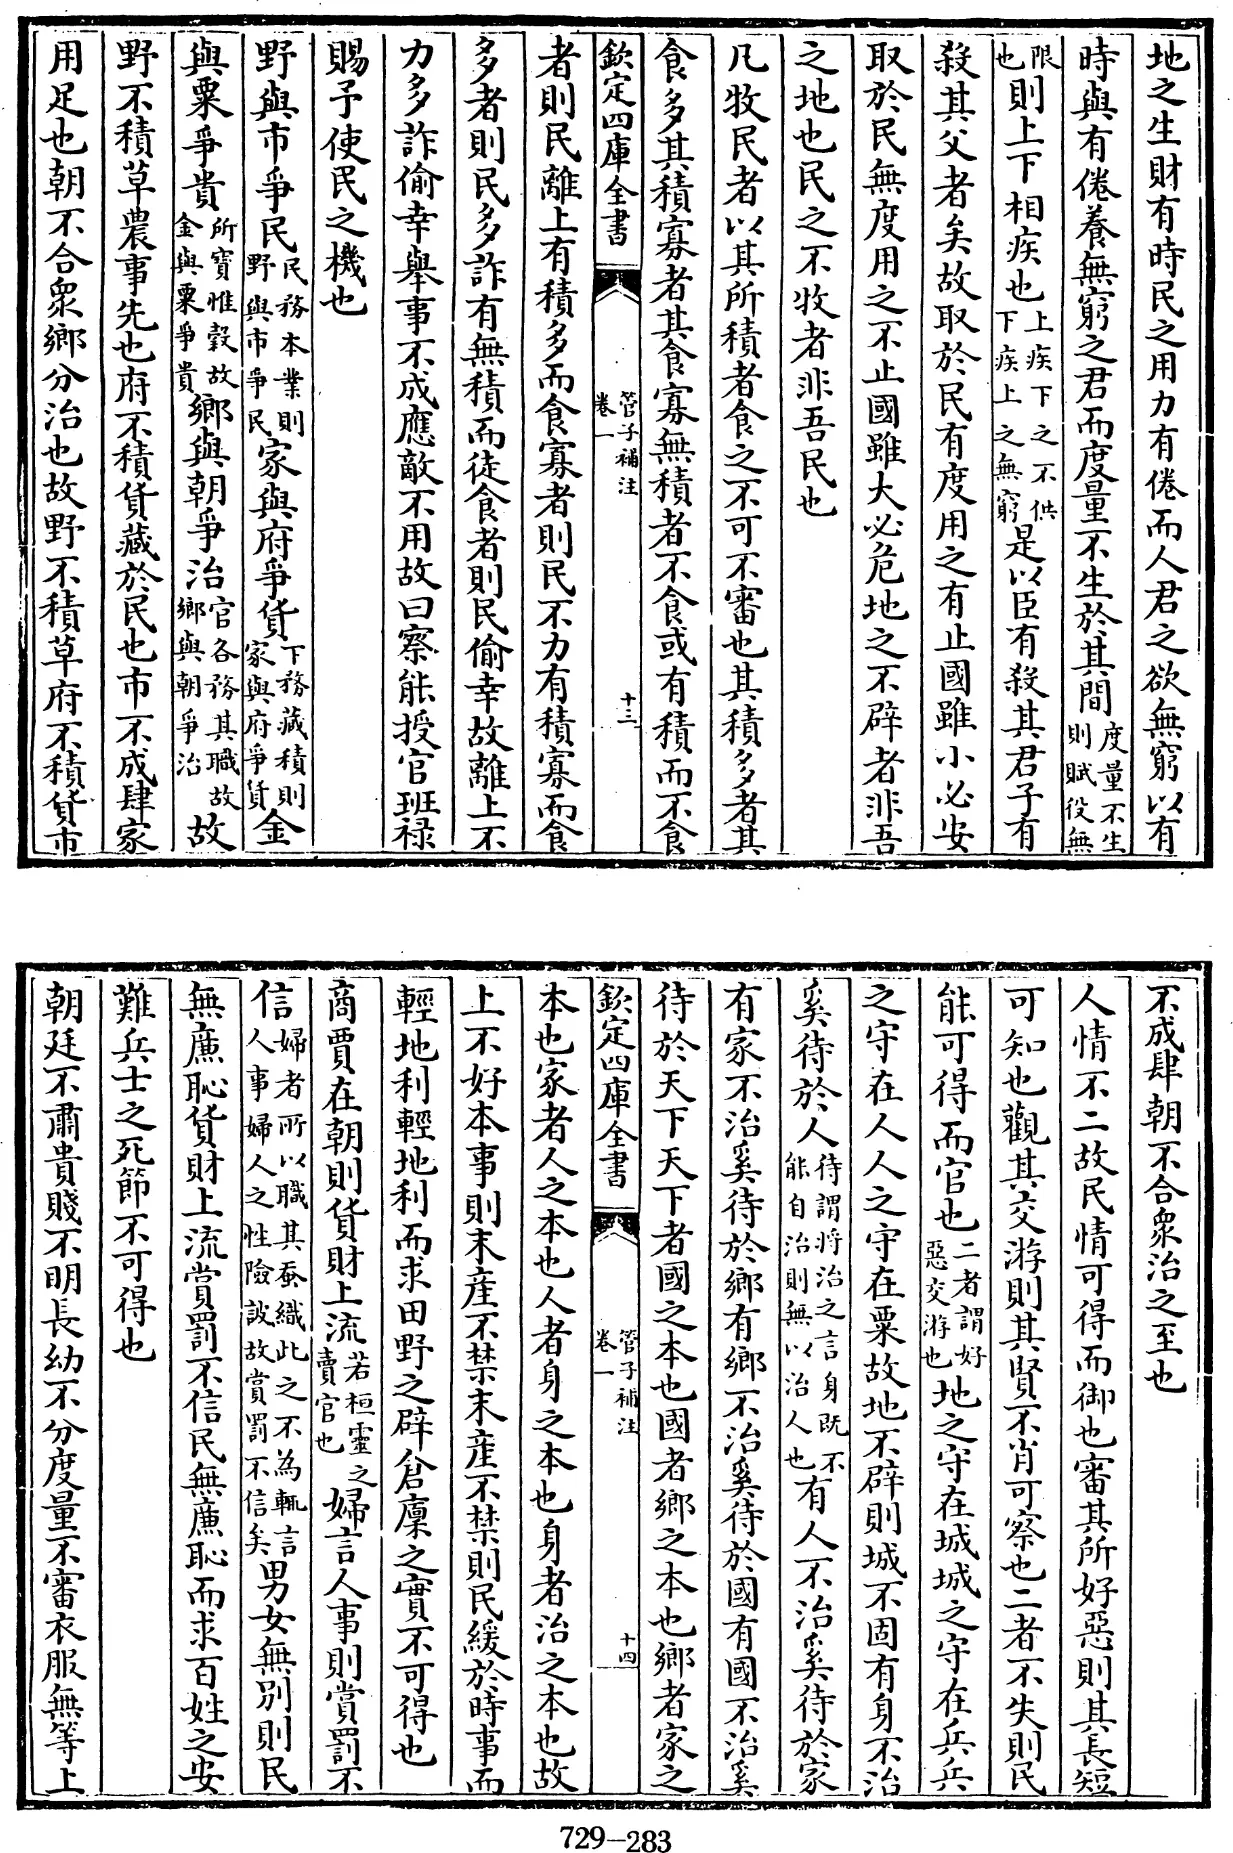 地之生財有時民之用力有倦而人君之欲無窮以有
時與有倦養無窮之君而度量不生於其間度量不生則賦役無
限也則上下相疾也上疾下之不供下疾上之無窮是以臣有殺其君子有
殺其父者矣故取於民有度用之有止國雖小必安
取於民無度用之不止國雖大必危地之不辟者非吾
之地也民之不牧者非吾民也
凡牧民者以其所積者食之不可不審也其積多者其
食多其積寡者其食寡無積者不食或有積而不食
欽定四庫全書
管子補注
卷一
十三
者則民離上有積多而食寡者則民不力有積寡而食
多者則民多詐有無積而徒食者則民偷幸故離上不
力多詐偷幸舉事不成應敵不用故曰察能授官班祿
賜予使民之機也
野與市爭民民務本業則野與市爭民家與府爭貨下務藏積則家與府爭貨金
與粟爭貴所寶惟穀故金與粟爭貴鄉與朝爭治官各務其職故鄉與朝爭治故
野不積草農事先也府不積貨藏於民也市不成肆家
用足也朝不合衆鄉分治也故野不積草府不積貨市
不成肆朝不合衆治之至也
人情不二故民情可得而御也審其所好惡則其長短
可知也觀其交游則其賢不肖可察也二者不失則民
能可得而官也二者謂好惡交游也地之守在城城之守在兵兵
之守在人人之守在粟故地不辟則城不固有身不治
奚待於人待謂將治之言身既不能自治則無以治人也有人不治奚待於家
有家不治奚待於鄉有鄉不治奚待於國有國不治奚
待於天下天下者國之本也國者鄉之本也鄉者家之
欽定四庫全書
管子補注
卷一
十四
本也家者人之本也人者身之本也身者治之本也故
上不好本事則末産不禁末産不禁則民緩於時事而
輕地利輕地利而求田野之辟倉廩之實不可得也
商賈在朝則貨財上流若桓靈之賣官也婦言人事則賞罰不
信婦者所以職其蚕織此之不為輒言人事婦人之性險詖故賞罰不信矣男女無別則民
無廉恥貨財上流賞罰不信民無廉恥而求百姓之安
難兵士之死節不可得也
朝廷不肅貴賤不明長幼不分度量不審衣服無等上
729-283